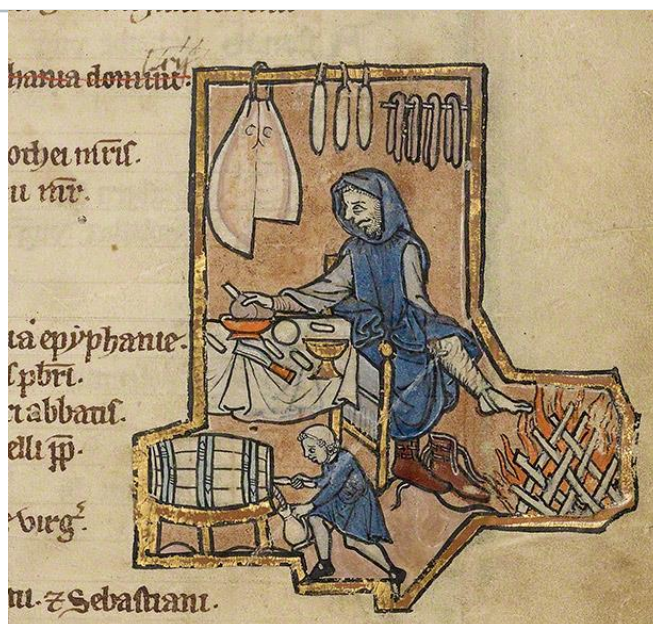 hania domini.
othei mris.
u mr.
ia epyphanie.
pbri.
abbatis.
elli pp.
virg.
u. ⁊ Sebastiani.